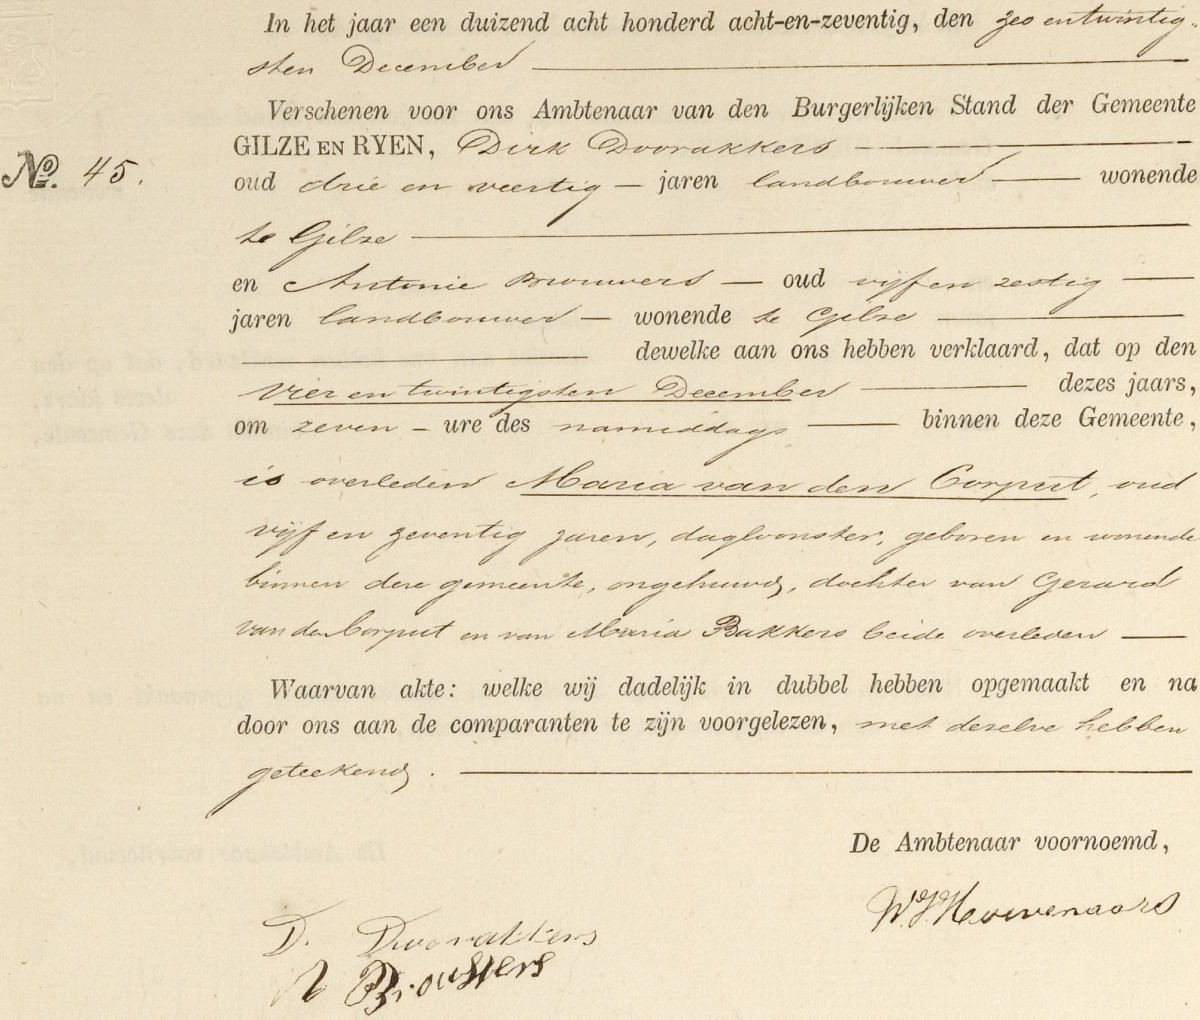 In het jaar een duizend acht honderd acht-en-zeventig, den zes en twintig-
sten December
Verschenen voor ons Ambtenaar van den Burgerlijken Stand der Gemeente
No. 45.
GILZE EN RYEN, Dirk Doorakkers
oud drie en veertig jaren landbouwer wonende
te Gilze
en Antonie Brouwers oud vijf en zestig
jaren landbouwer wonende te Gilze
dewelke aan ons hebben verklaard, dat op den
vier en twintigsten December dezes jaars,
om zeven ure des namiddags binnen deze Gemeente,
is overleden Maria van den Corput, oud
vijf en zeventig jaren, dagloonster, geboren en wonende
binnen deze gemeente, ongehuwd, dochter van Gerard
van den Corput en van Maria Bakkers beide overleden
Waarvan akte: welke wij dadelijk in dubbel hebben opgemaakt en na
door ons aan de comparanten te zijn voorgelezen, met dezelve hebben
geteekend.
De Ambtenaar voornoemd,
D. Doorakkers
A Brouwers